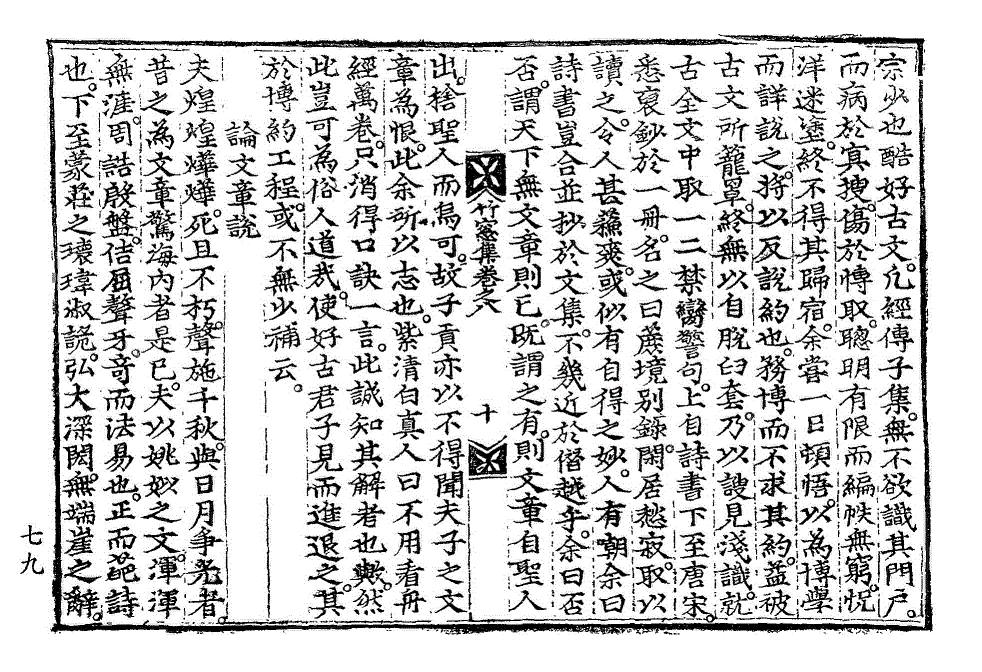 宗少也酷好古文。凡經傳子集。無不欲識其門戶。
而病於冥搜。傷於博取。聰明有限而編帙無窮。怳
洋迷塗。終不得其歸宿。余嘗一日頓悟。以為博學
而詳說之。將以反說約也。務博而不求其約。益被
古文所籠罩。終無以自脫臼套。乃以謏見淺識。就
古今文中取一二禁臠警句。上自詩書下至唐宋。
悉裒鈔於一冊。名之曰蔗境別錄。閑居愁寂。取以
讀之。令人甚蘓爽。或似有自得之妙。人有嘲余曰
詩書豈合並抄於文集。不幾近於僭越乎。余曰否
否。謂天下無文章則已。旣謂之有。則文章自聖人
竹窓集卷之八
十
出。捨聖人而焉可。故子貢亦以不得聞夫子之文
章為恨。此余所以志也。紫清白真人曰不用看冊
經萬卷。只消得口訣一言。此誠知其解者也歟。然
此豈可為俗人道哉。使好古君子見而進退之。其
於博約工程。或不無少補云。
論文章說
夫煌煌燁燁。死且不朽。聲施千秋。與日月爭光者。
昔之為文章驚海內者是已。夫以姚姒之文。渾渾
無涯。周誥殷盤。佶屈聲牙。奇而法易也。正而葩詩
也。下至蒙莊之瓌瑋淑詭。弘大深閎。無端崖之辭。
七九